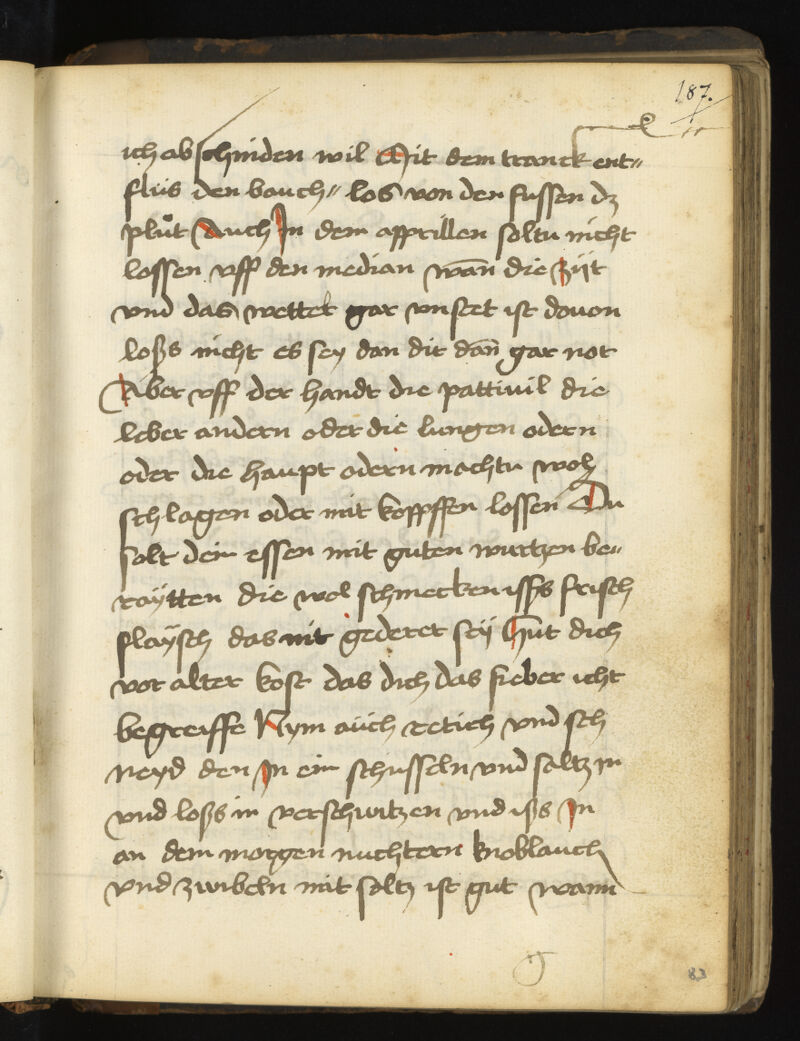 187.
ich ab schinden wil Mit dem tranck ent„
flüs den bauch„ los von den fussen dz
plůt Auch In dem apprillen soltu nicht
lossen vff den median wañ die zijt
vnd das wetter gar vnstet ist dauon
loſßs nicht es sey dan dir dañ gar not
Aber vff der handt die pattiuil die
leber andern oder die lungen odern
oder die haupt odern machtu wol
schlagen oder mit koppffen lossen Du
solt dein essen mit guten wurtzen be„
raÿtten die wol schmecken iſßs frisch
flaÿsch das nit gederet seÿ Hut dich
vor alter kost das dich das fieber icht
begreiffe Nym aüch retich vnd sch
neyd den In ein schusseln vnd saltz in
vnd loſßs in verschwitzen vnd iſßs In
an dem morgen nuchtern knoblauch
vnd zwibeln mit saltz ist gut wann
83